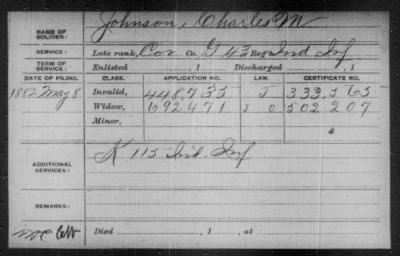 NAME OF SOLDIER: Johnson, Charles M
SERVICE: Late rank, Cor Co. G 43 Reg't Ind Inf
TERM OF SERVICE: Enlisted , 1 Discharged , 1
DATE OF FILING. CLASS. APPLICATION NO. LAW. CERTIFICATE NO.
1882 May 8 Invalid, 448.735 J 333.565
Widow, 692.471 502.207
Minor,
ADDITIONAL SERVICES: K 115 Ind. Inf
REMARKS:
Died , 1 , at